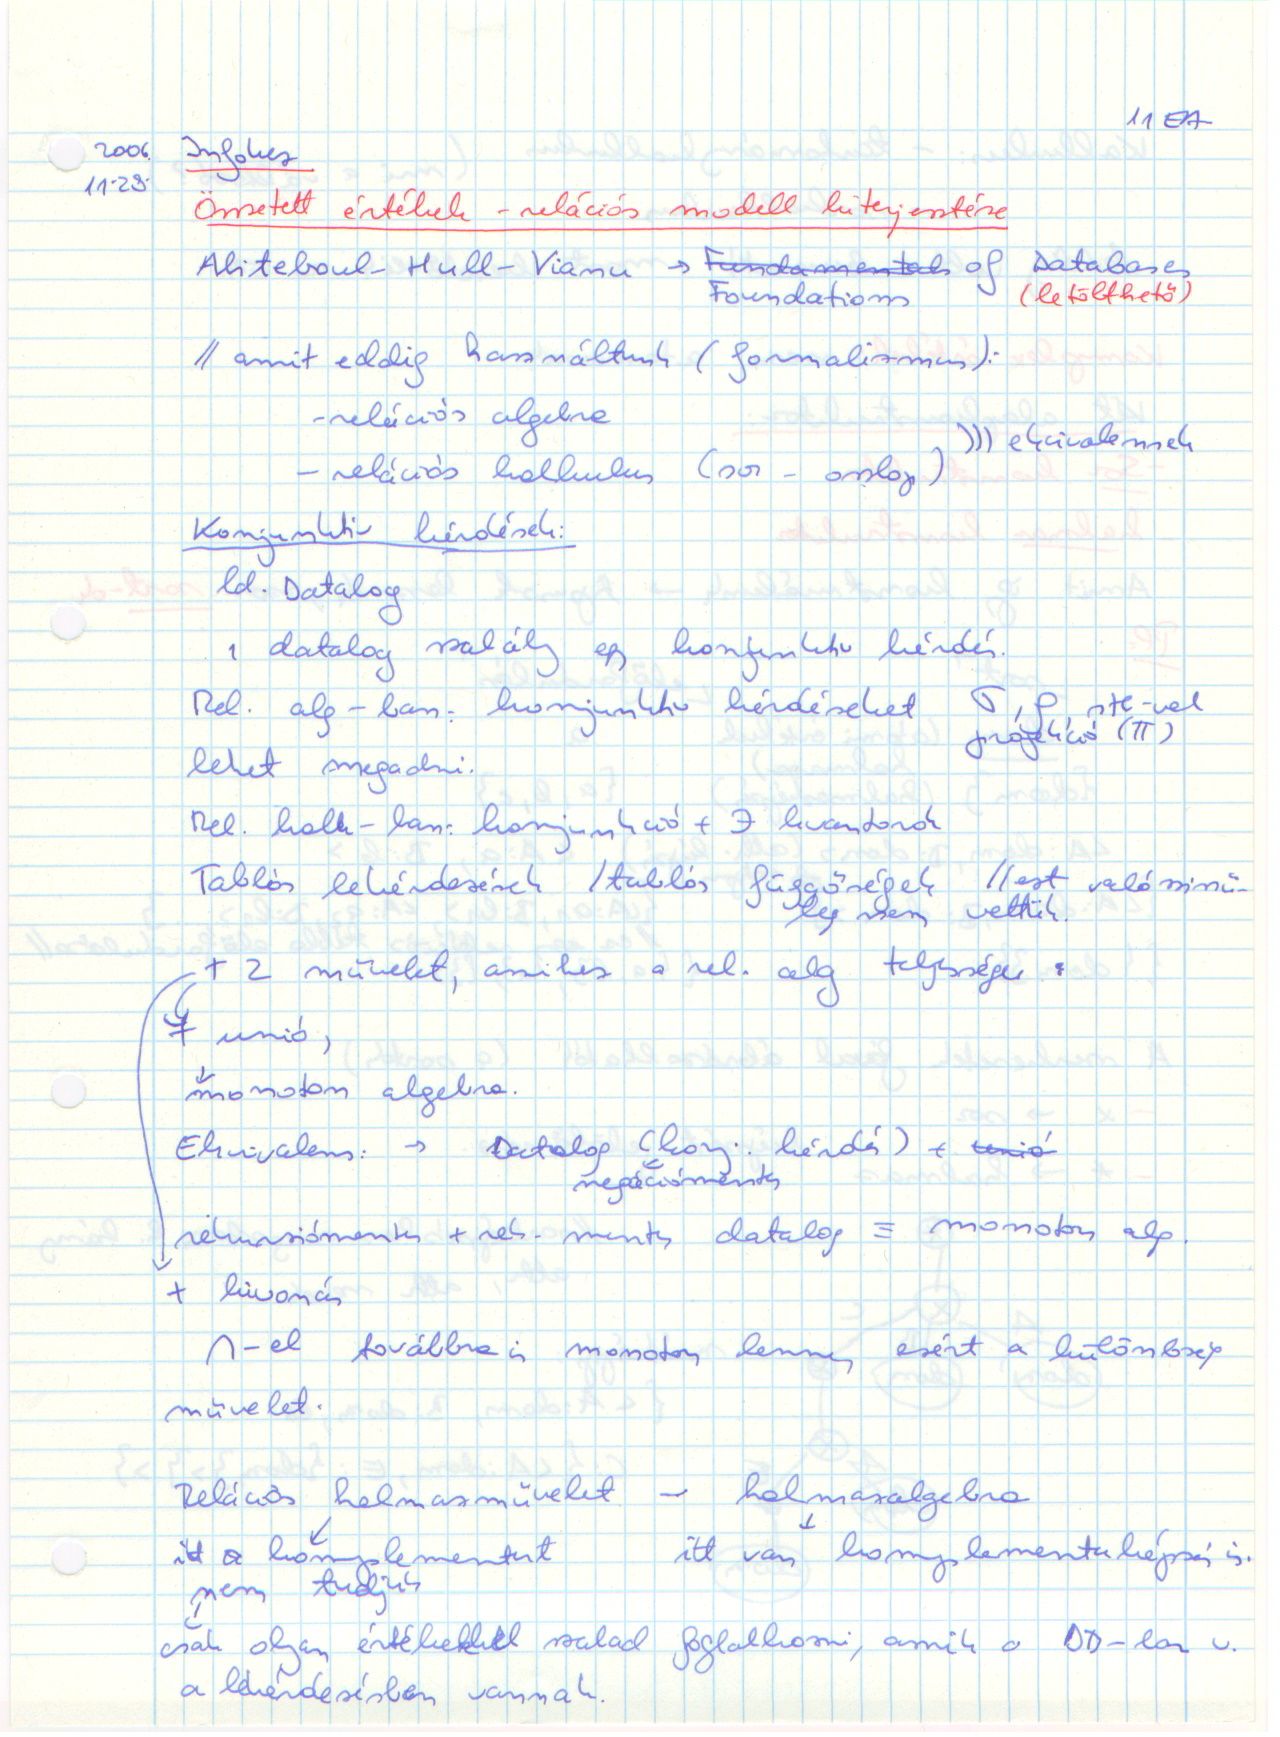 11 EA
2006. Infokez
11.29.
Összetett értékek - relációs modell kiterjesztése
Abiteboul - Hull - Vianu → Fundamentals of Databases
Foundations (letölthető)
// amit eddig használtunk (formalizmus):
- relációs algebra
- relációs kalkulus (sor - oszlop) ))) ekvivalensek
Konjunktív kérdések:
ld. Datalog
1 datalog szabály egy konjunktív kérdés.
Rel. alg-ban: konjunktív kérdéseket σ, ρ, stb-vel
projekció (π)
lehet megadni.
Rel. kalk-ban: konjunkció + ∃ kvantorok
Tablós lekérdezések / tablós függőségek // ezt valószínű-
leg nem vettük.
+ 2 művelet, amihez a rel. alg teljessége:
+ unió,
monoton algebra.
Ekvivalens: → Datalog (konj. kérdés) + unió
negációmentes
rekurziómentes + rek. mentes datalog ≡ monoton alg.
+ kivonás
∩-el továbbra is monoton lenne, ezért a különbség
művelet.
Relációs halmazművelet - halmazalgebra
itt a komplementert itt van komplementerképzés is.
nem tudjuk
csak olyan értékekkel szabad foglalkozni, amik a DB-ban v.
a lekérdezésben vannak.